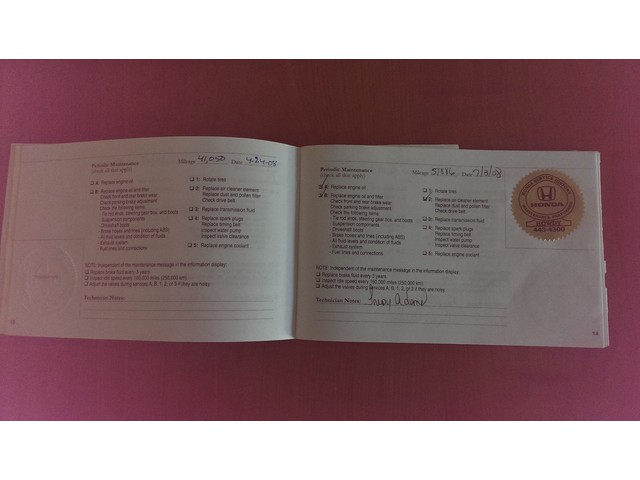 Periodic Maintenance
(check all that apply)
Mileage 41,050 Date 4-24-08
A: Replace engine oil
B: Replace engine oil and filter
Check front and rear brake wear
Check parking brake adjustment
Check the following items:
· Tie rod ends, steering gear box, and boots
· Suspension components
· Driveshaft boots
· Brake hoses and lines (including ABS)
· All fluid levels and condition of fluids
· Exhaust system
· Fuel lines and connections
1: Rotate tires
2: Replace air cleaner element
Replace dust and pollen filter
Check drive belt
3: Replace transmission fluid
4: Replace spark plugs
Replace timing belt
Replace water pump
Inspect valve clearance
5: Replace engine coolant
NOTE: Independent of the maintenance message in the information display:
Replace brake fluid every 3 years.
Inspect idle speed every 160,000 miles (250,000 km).
Adjust the valves during services A, B, 1, 2, or 3 if they are noisy.
Technician Notes:
Periodic Maintenance
(check all that apply)
Mileage Date 7/9/08
A: Replace engine oil
B: Replace engine oil and filter
Check front and rear brake wear
Check parking brake adjustment
Check the following items:
· Tie rod ends, steering gear box, and boots
· Suspension components
· Driveshaft boots
· Brake hoses and lines (including ABS)
· All fluid levels and condition of fluids
· Exhaust system
· Fuel lines and connections
1: Rotate tires
2: Replace air cleaner element
Replace dust and pollen filter
Check drive belt
3: Replace transmission fluid
4: Replace spark plugs
Replace timing belt
Replace water pump
Inspect valve clearance
5: Replace engine coolant
HONDA
443-4300
NOTE: Independent of the maintenance message in the information display:
Replace brake fluid every 3 years.
Inspect idle speed every 160,000 miles (250,000 km).
Adjust the valves during services A, B, 1, 2, or 3 if they are noisy.
Technician Notes:
14